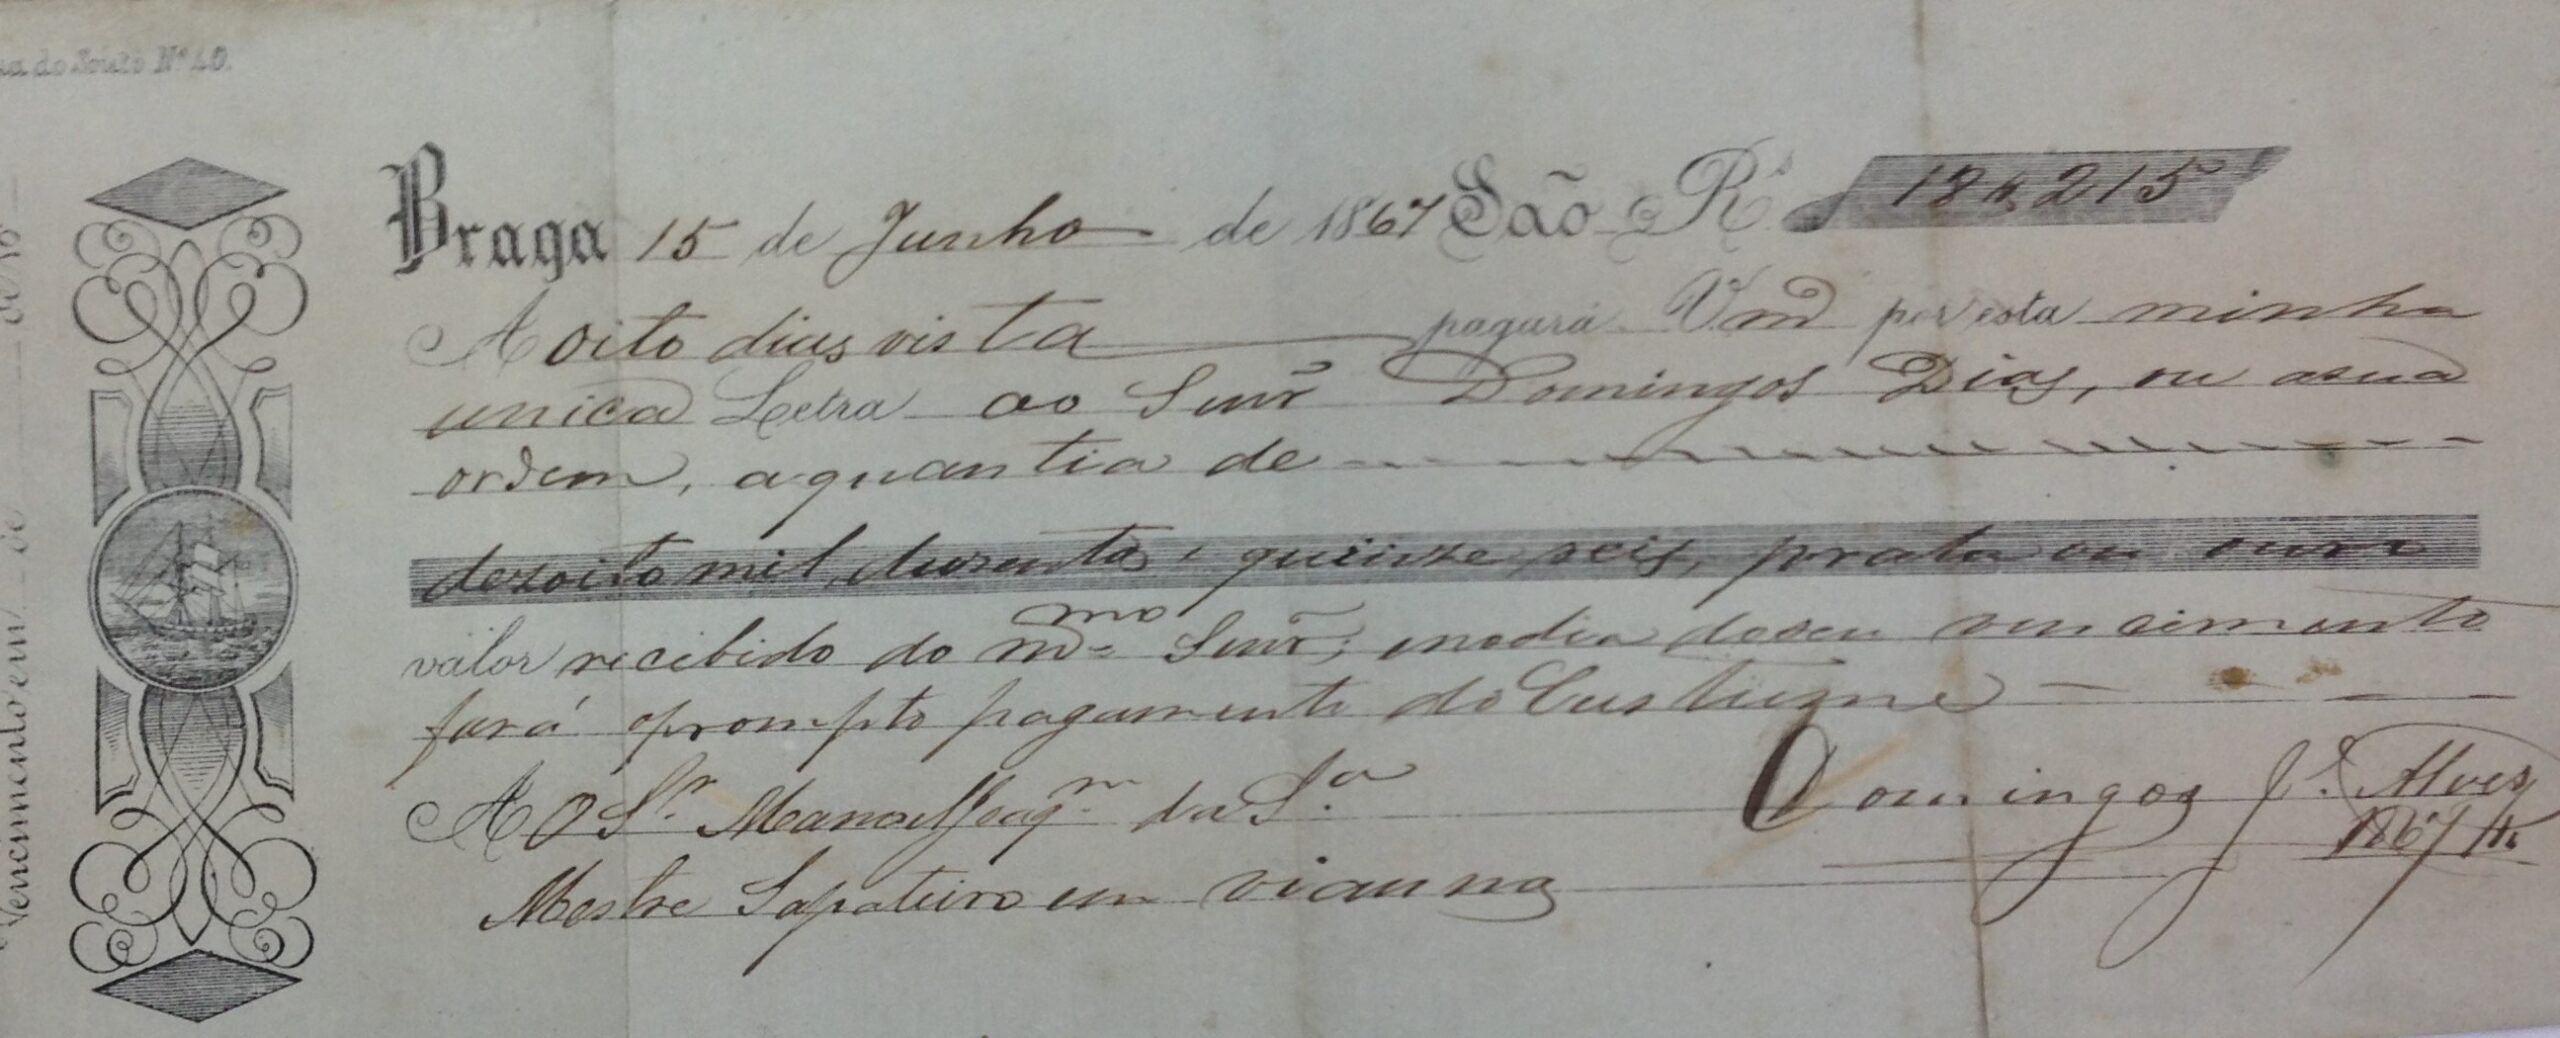 do Souto Nº 40.
Vencimento em de de 18
Braga 15 de Junho de 1867 São Rs 18$215
A oito dias vista pagará Vm por esta minha
unica Letra ao Snr Domingos Dias, ou a sua
ordem, a quantia de
dezoito mil duzentos e quinze reis, prata ou ouro
valor recibido do mmo Snr; e no dia do seu vencimento
fará o prompto pagamento do Custume
A O Sr. Manoel Joaqm da Sa
Domingos Je. Alves
Mestre Sapateiro em Vianna
1867